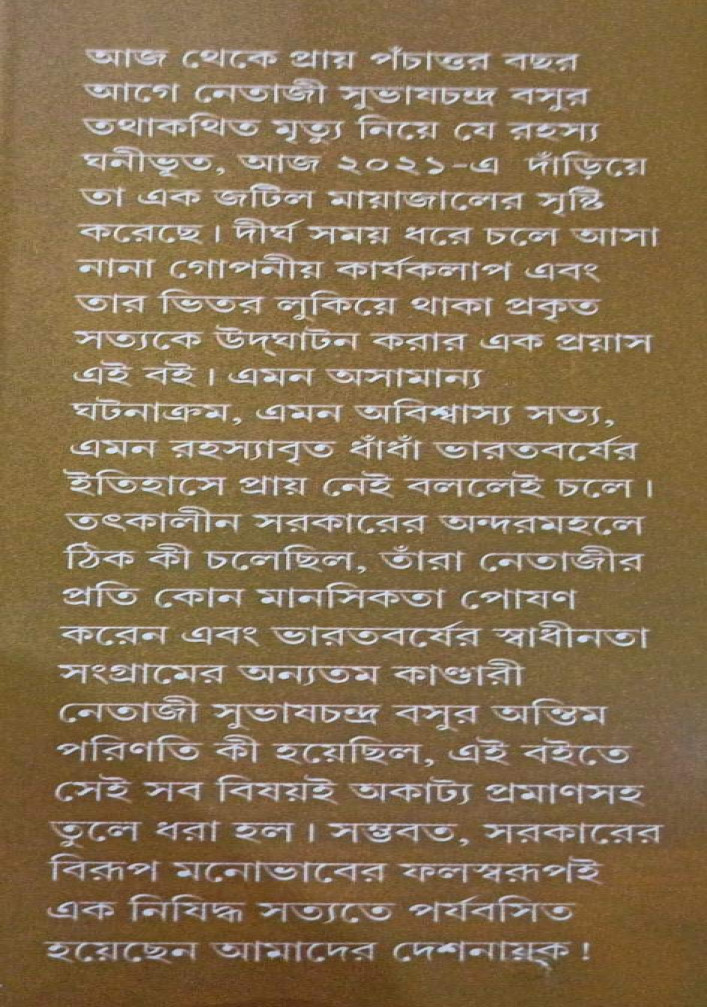 আজ থেকে প্রায় পঁচাত্তর বছর
আগে নেতাজী সুভাষচন্দ্র বসুর
তথাকথিত মৃত্যু নিয়ে যে রহস্য
ঘনীভূত, আজ ২০২১-এ দাঁড়িয়ে
তা এক জটিল মায়াজালের সৃষ্টি
করেছে। দীর্ঘ সময় ধরে চলে আসা
নানা গোপনীয় কার্যকলাপ এবং
তার ভিতর লুকিয়ে থাকা প্রকৃত
সত্যকে উদ্‌ঘাটন করার এক প্রয়াস
এই বই। এমন অসামান্য
ঘটনাক্রম, এমন অবিশ্বাস্য সত্য,
এমন রহস্যাবৃত ধাঁধাঁ ভারতবর্ষের
ইতিহাসে প্রায় নেই বললেই চলে।
তৎকালীন সরকারের অন্দরমহলে
ঠিক কী চলেছিল, তাঁরা নেতাজীর
প্রতি কোন মানসিকতা পোষণ
করেন এবং ভারতবর্ষের স্বাধীনতা
সংগ্রামের অন্যতম কাণ্ডারী
নেতাজী সুভাষচন্দ্র বসুর অন্তিম
পরিণতি কী হয়েছিল, এই বইতে
সেই সব বিষয়ই অকাট্য প্রমাণসহ
তুলে ধরা হল। সম্ভবত, সরকারের
বিরূপ মনোভাবের ফলস্বরূপই
এক নিষিদ্ধ সত্যতে পর্যবসিত
হয়েছেন আমাদের দেশনায়ক!